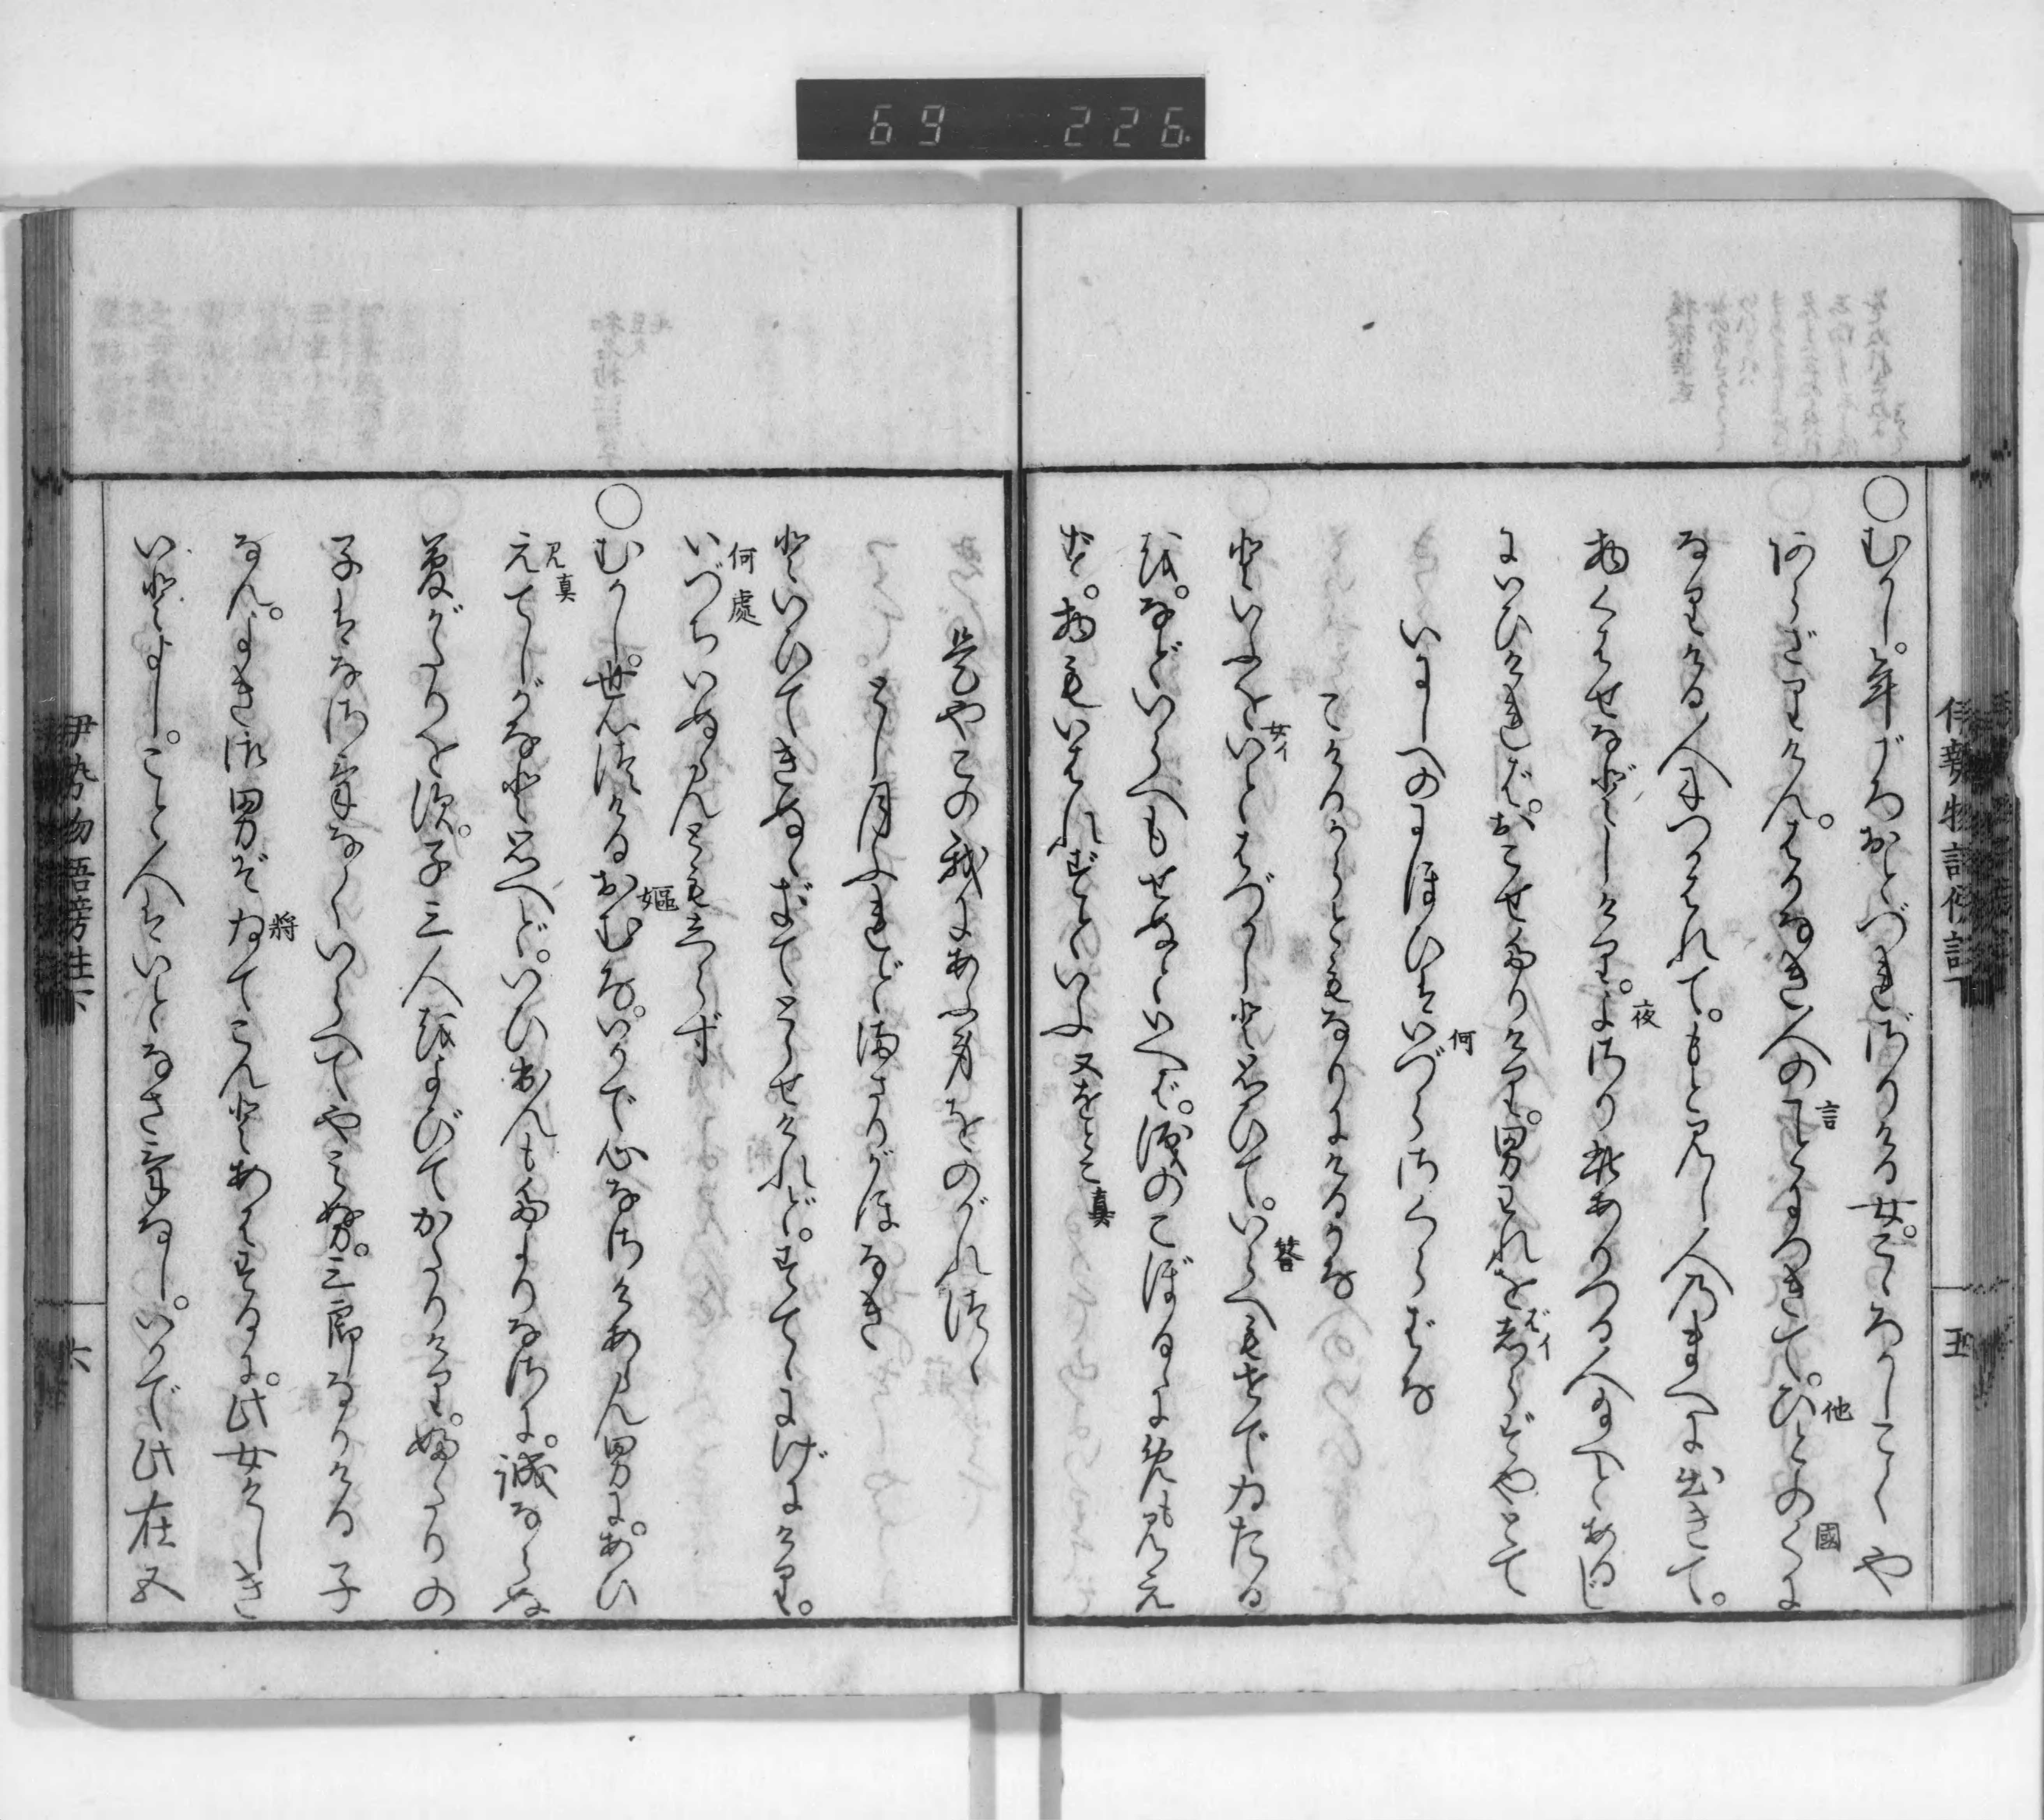 69 226
伊勢物語傍註下
五
○むかし。年ごろおとづれざりける女。こゝろかしこくや
あらざりけん。はかなき人の言ことにつきて。他ひとの國くに
なりける人につかはれて。もと見し人のまへに出きて。
物くはせなどしけり。夜よさり此ありつる人給へとあるじ
にいひければ。おこせたりけり。男われをばイ しらずやとて
いにしへのにほひはいづら何 さくらばな
こけるからともなりにけるかな
といふを女イ いとはづかしと思ひて。答いらへもせでゐたる
を。などいらへもせぬといへば。涙のこぼるゝに目も見え
ず。物もいはれずといふ 又をとこ真
是やこの我にあふ身をのがれつゝ
とし月ふれどまさりがほなき
といひてきぬゝぎてとらせけれど。すてゝにげにけり。
何處いづちいぬらんともしらず
○むかし。世心つける嫗おむな。いかで心なさけあらん男に。あひ
見真えてしがなと思へど。いひ出んもたよりなさに。誠ならぬ
夢がたりをす。子三人をよびてかたりけり。ふたりの
子はなさけなくいらへてやみぬ。三郎なりける子
なん。よき御男ぞ將ゐてこんとあはするに。此女けしき
いとよし。こと人はいとなさけなし。いかで此在五
伊勢物語傍註下
六